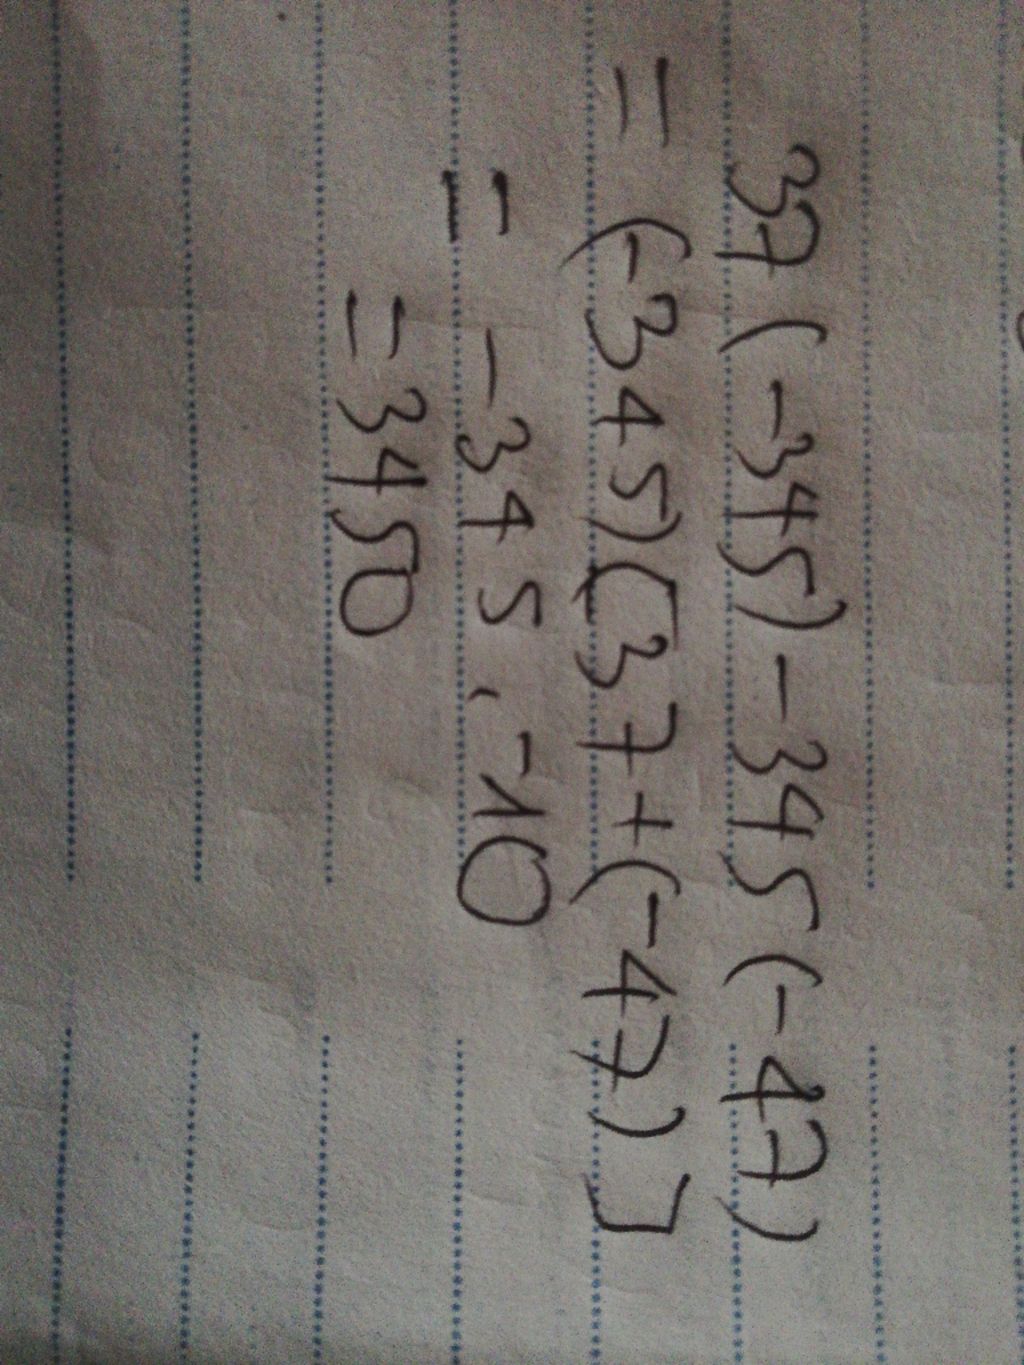 37(-345)-345(-47)
=(-345)[37+(-47)]
= -345.-10
=3450